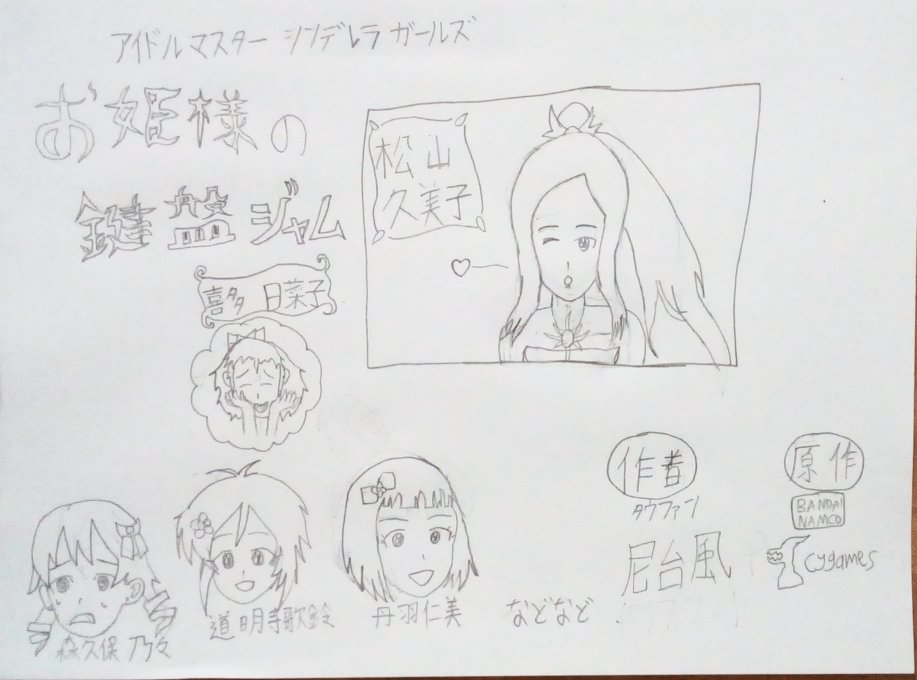 アイドルマスター シンデレラ ガールズ
お姫様の
鍵盤ジャム
松山
久美子
喜多 日菜子
森久保 乃々
道明寺歌鈴
丹羽仁美
などなど
作者
タウファン
尼台風
原作
BANDAI
NAMCO
Cygames